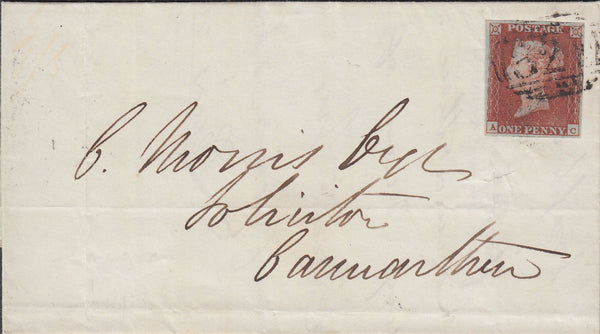 POSTAGE
A ONE PENNY C
C. Morris Esqr
Solicitor
Carmarthen